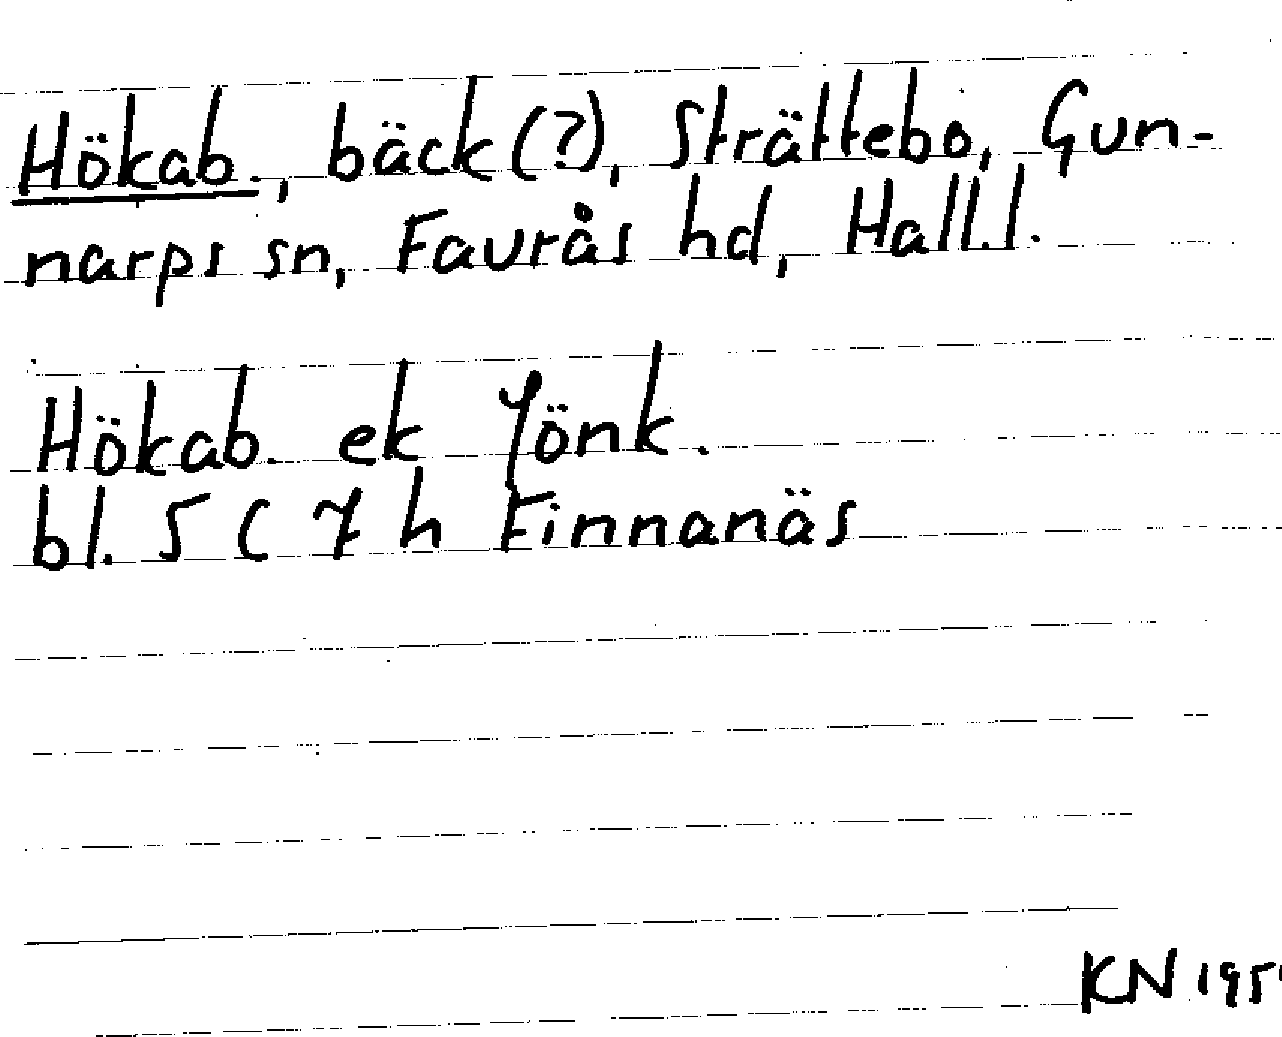 Hökab., bäck(?), Strättebo, Gun-
narps sn, Faurås hd, Hall.l.
Hökab. ek Jönk.
bl. 5 C 7 h Finnanäs
KN